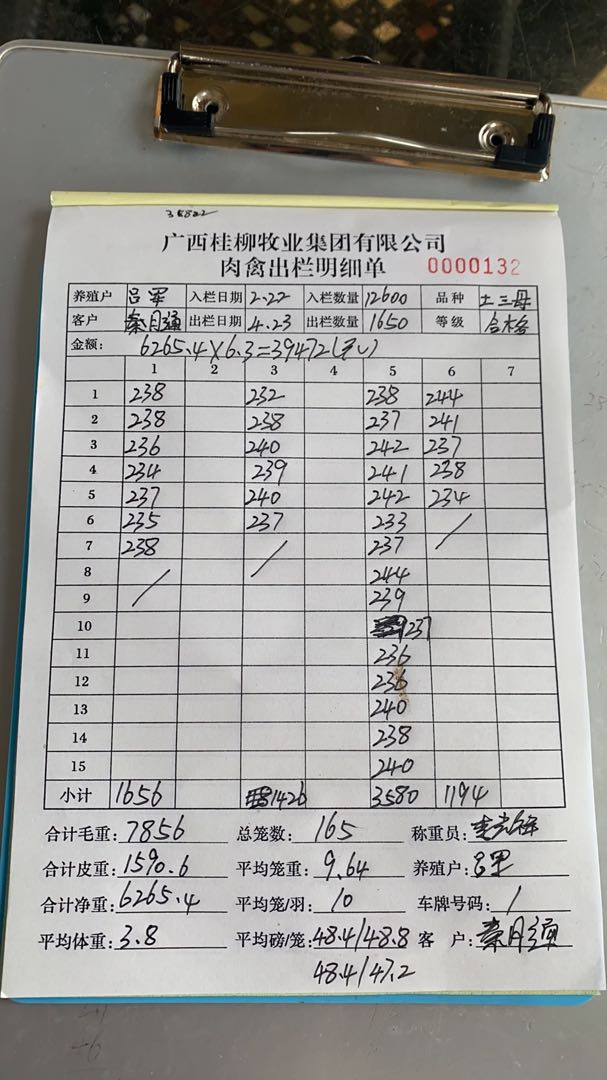 35822
广西桂柳牧业集团有限公司
肉禽出栏明细单 0000132
养殖户 吕军 入栏日期 2.22 入栏数量 12600 品种 土三母
客户 秦月通 出栏日期 4.23 出栏数量 1650 等级 合格
金额: 6265.4×6.3=39472(元)
1 2 3 4 5 6 7
1 238 232 238 244
2 238 238 237 241
3 236 240 242 237
4 234 239 241 238
5 237 240 242 234
6 235 237 233 /
7 238 / 237
8 / 244
9 239
10 237
11 236
12 236
13 240
14 238
15 240
小计 1656 1426 3580 1194
合计毛重: 7856 总笼数: 165 称重员:
合计皮重: 1590.6 平均笼重: 9.64 养殖户: 吕军
合计净重: 6265.4 平均笼/羽: 10 车牌号码: /
平均体重: 3.8 平均磅/笼: 48.4/48.8 客 户: 秦月通
48.4/47.2